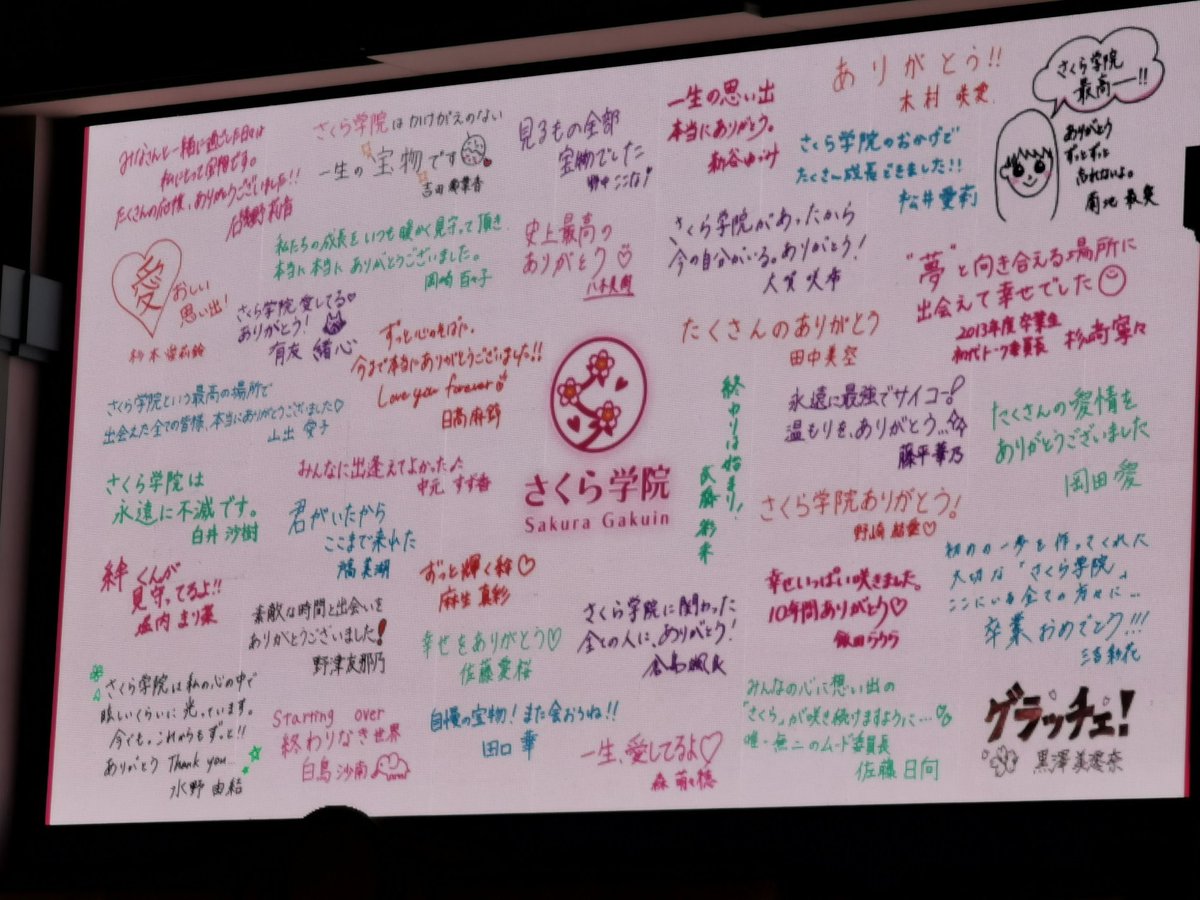 みなさんと一緒に過ごした日々は
私にとって宝物です。
たくさんの応援、ありがとうございました!!
石綿野莉音
さくら学院はかけがえのない
一生の宝物です
吉田 爽葉香
見るもの全部
宝物でした
野中 ここな
一生の思い出
本当にありがとう。
新谷ゆづみ
ありがとう!!
木村 咲愛
さくら学院のおかげで
たくさん成長できました!!
松井愛莉
さくら学院
最高ー!!
ありがとう
ずっとずっと
忘れないよ。
菊地 最愛
愛
おしい
思い出!
私たちの成長をいつも暖かく見守って頂き
本当に本当にありがとうございました。
岡崎 百々子
史上最高の
ありがとう♡
八木美樹
さくら学院があったから
今の自分がいる。ありがとう!
大賀 咲希
"夢"と向き合える場所に
出会えて幸せでした
2013年度卒業生
初代トーク委員長 杉崎寧々
さくら学院 愛してる♡
ありがとう!
有友 緒心
ずっと心のそばに。
今まで本当にありがとうございました!!
Love you forever
日髙麻鈴
たくさんのありがとう
田中美空
さくら学院という最高の場所で
出会えた全ての皆様、本当にありがとうございました♡
山出 愛子
終わりは始まり!
武藤 彩未
永遠に最強でサイコー!
温もりを、ありがとう...
藤平華乃
たくさんの愛情を
ありがとうございました
岡田 愛
さくら学院は
永遠に不滅です。
白井 沙樹
みんなに出逢えてよかった♪
中元 すず香
君がいたから
ここまで来れた
さくら学院
Sakura Gakuin
さくら学院ありがとう!
野崎 結愛♡
初めの一歩を作ってくれた
大切な「さくら学院」
ここにいる全ての方々に...
卒業おめでとう!!!
三吉彩花
絆くんが
見守ってるよ!!
堀内 まり菜
素敵な時間と出会いを
ありがとうございました!
野津友那乃
ずっと輝く絆♡
麻生 真彩
幸せをありがとう♡
佐藤愛桜
さくら学院に関わった
全ての人に、ありがとう!
倉島颯良
幸せいっぱい咲きました。
10年間ありがとう♡
飯田らうら
さくら学院は私の心の中で
眩しいくらいに光っています。
今でも。これからもずっと!!
ありがとう Thank you
水野 由結
Starting over
終わりなき世界
白鳥 沙南
自慢の宝物!また会おうね!!
田口 華
一生、愛してるよ♡
森 萌々穂
みんなの心に想い出の
「さくら」が咲き続けますように...
唯一無二のムード委員長
佐藤 日向
グラッチェ!
黒澤美澪奈